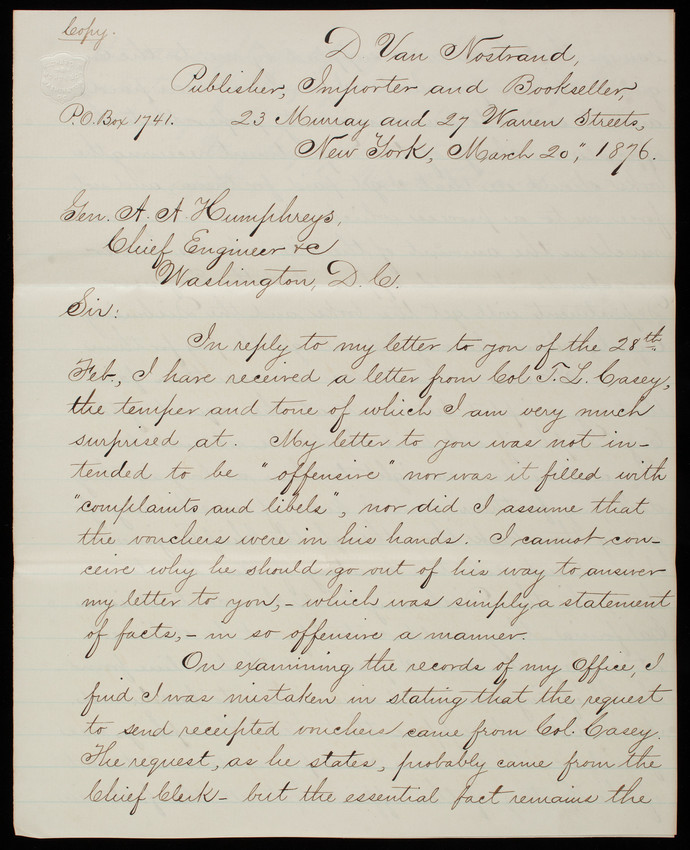 Copy.
D Van Nostrand,
Publisher, Importer and Bookseller,
P.O. Box 1741. 23 Murray and 27 Warren Streets,
New York, March 20", 1876.
Gen. A. A. Humphreys,
Chief Engineer &c
Washington, D. C.
Sir:
In reply to my letter to you of the 28th
Feb., I have received a letter from Col T. L. Casey,
the temper and tone of which I am very much
surprised at. My letter to you was not in-
tended to be "offensive" nor was it filled with
"complaints and libels", nor did I assume that
the vouchers were in his hands. I cannot con-
ceive why he should go out of his way to answer
my letter to you, - which was simply a statement
of facts, - in so offensive a manner.
On examining the records of my Office, I
find I was mistaken in stating that the request
to send receipted vouchers came from Col. Casey.
The request, as he states, probably came from the
Chief Clerk - but the essential fact remains the